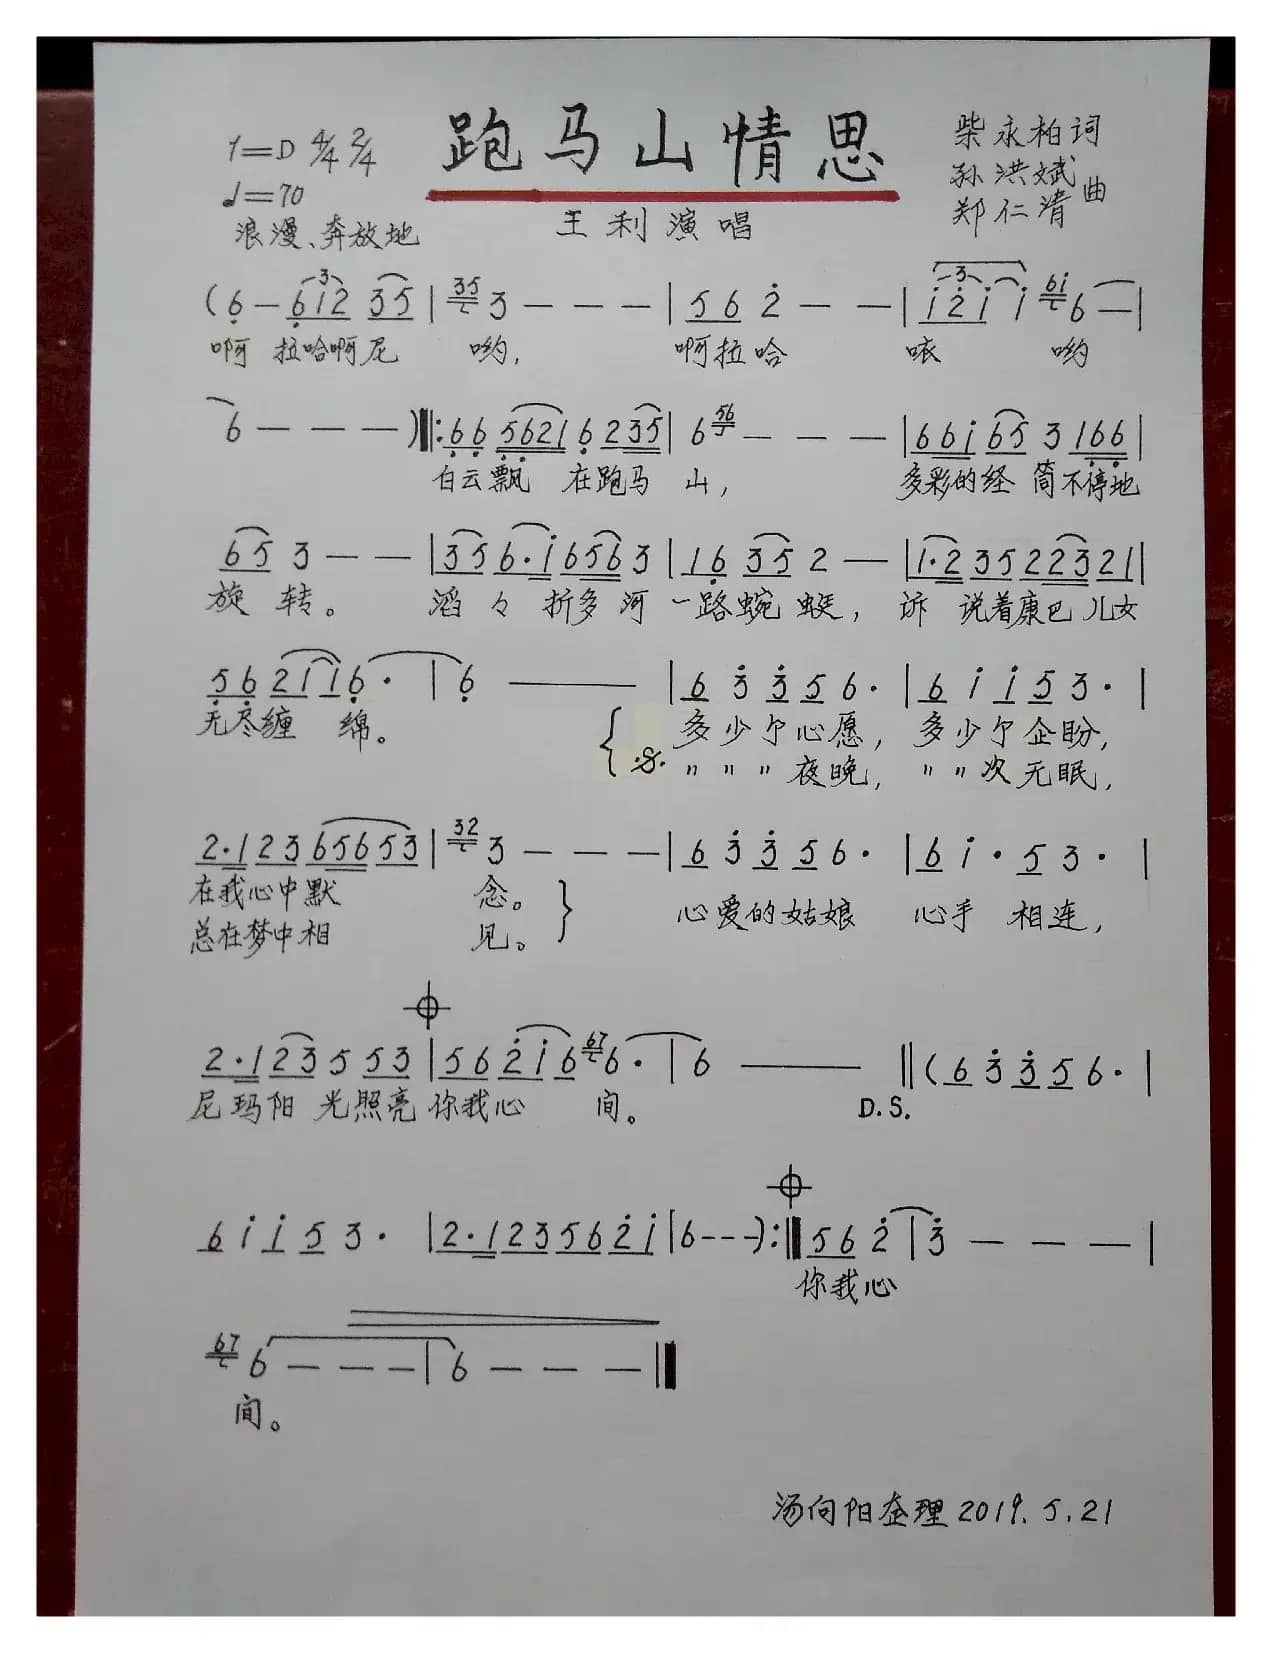 跑马山情思
1=D 4/4 2/4
♩=70
浪漫、奔放地
王利演唱
柴永柏词
孙洪斌
郑仁清曲
(6 — 6 1 2 3 5 | 35 3 — — — | 5 6 2 — — | 1 2 1 1 61 6 — |
啊 拉哈啊尼 哟, 啊拉哈 咳 哟
6 — — — ) ‖: 6 6 5 6 2 1 6 2 3 5 | 6 56 — — — | 6 6 1 6 5 3 1 6 6 |
白云飘 在跑马 山, 多彩的经 筒不停地
6 5 3 — — | 3 5 6 · 1 6 5 6 3 | 1 6 3 5 2 — | 1 · 2 3 5 2 2 3 2 1 |
旋 转。 滔々 折多河 一路蜿蜒, 诉 说着康巴儿女
5 6 2 1 1 6 · | 6 — | 6 3 3 5 6 · | 6 1 1 5 3 · |
无尽缠 绵。 { 多少个心愿, 多少个企盼,
.S. 〃 〃 〃 夜晚, 〃 〃 次无眠,
2 · 1 2 3 6 5 6 5 3 | 32 3 — — — | 6 3 3 5 6 · | 6 1 · 5 3 · |
在我心中默 念。 } 心爱的姑娘 心手 相连,
总在梦中相 见。
2 · 1 2 3 5 5 3 | 5 6 2 1 6 67 6 · | 6 — ‖ ( 6 3 3 5 6 · |
尼玛阳 光照亮你我心 间。 D.S.
6 1 1 5 3 · | 2 · 1 2 3 5 6 2 1 | 6 - - - ) :‖ 5 6 2 | 3 — — — |
你我心
67 6 — — — | 6 — — — ‖
间。
汤向阳整理2019.5.21